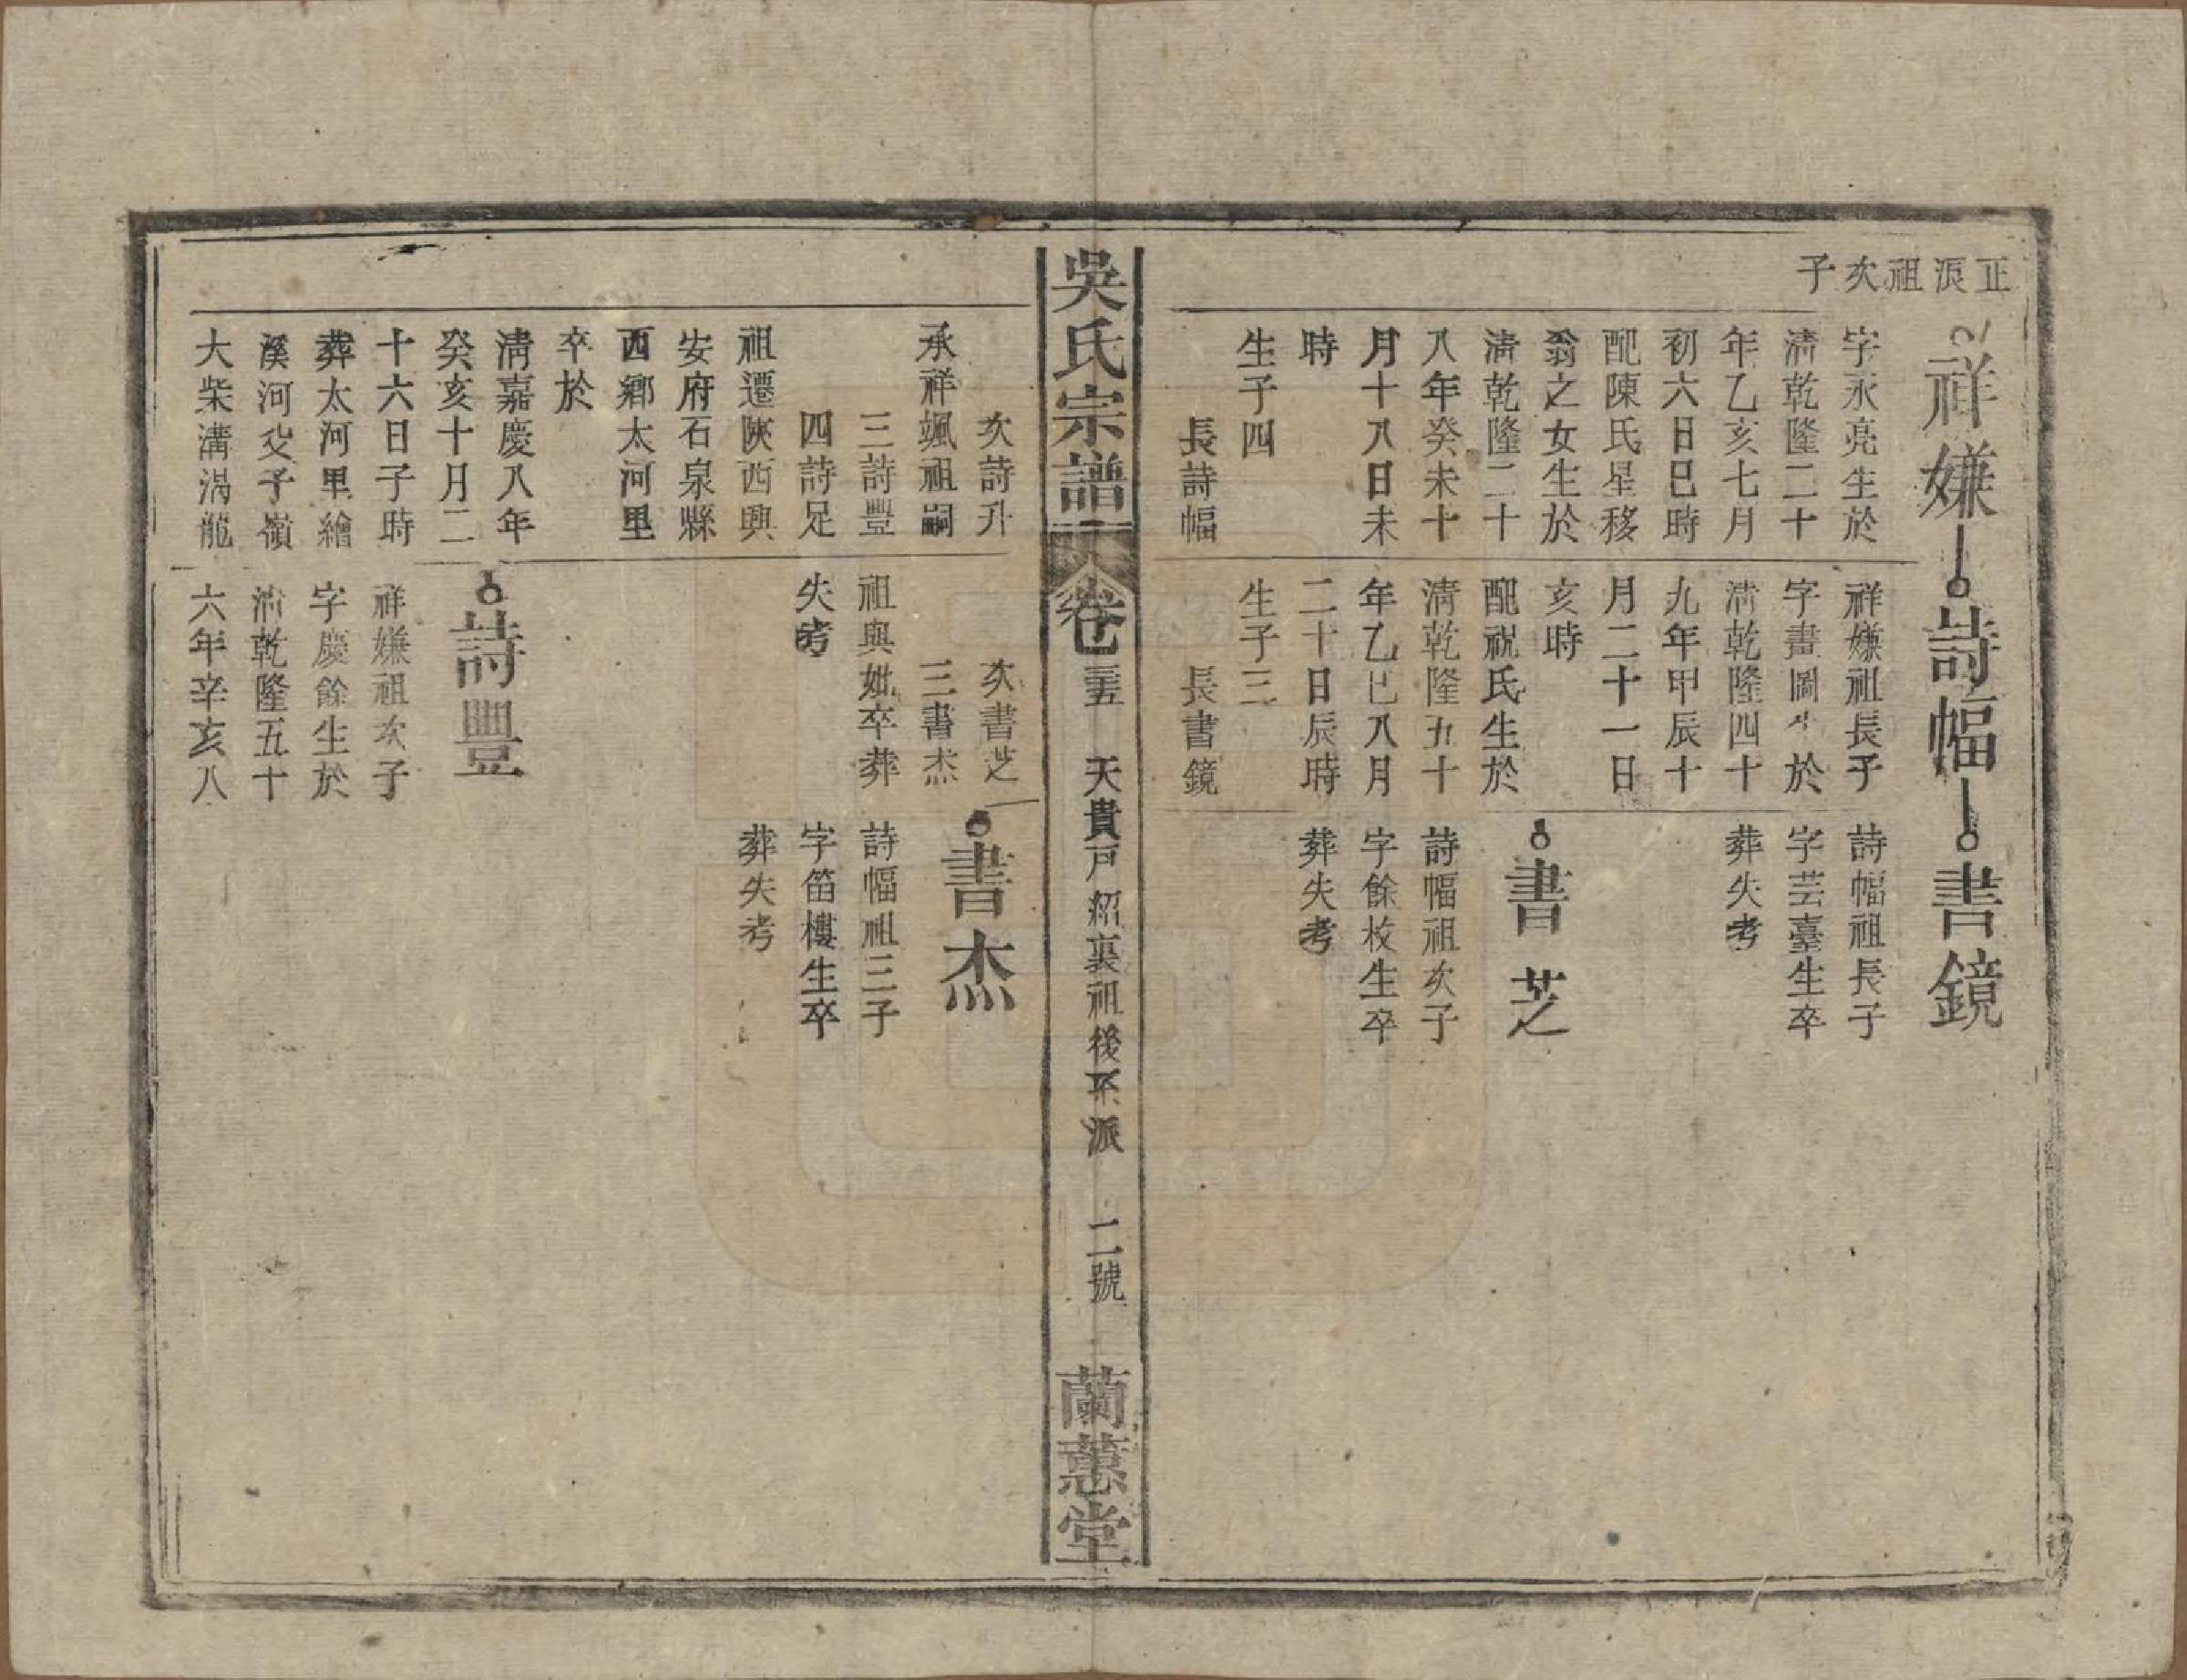 正派祖次子
祥嫌
字永亮生於
清乾隆二十
年乙亥七月
初六日巳時
配陳氏星移
翁之女生於
清乾隆二十
八年癸未十
月十八日未
時
生子四
長詩幅
詩幅
祥嫌祖長子
字畫圖生於
清乾隆四十
九年甲辰十
月二十一日
亥時
配祝氏生於
清乾隆五十
年乙巳八月
二十日辰時
生子三
長書鏡
書鏡
詩幅祖長子
字芸臺生卒
葬失考
書芝
詩幅祖次子
字餘枚生卒
葬失考
吳氏宗譜
卷七
三五
天貴戸紹裏祖後系派
二號
蘭蕙堂
次詩升
承祥颯祖嗣
三詩豐
四詩足
祖遷陝西興
安府石泉縣
西鄉太河里
卒於
清嘉慶八年
癸亥十月二
十六日子時
葬太河里繪
溪河父子嶺
大柴溝渴龍
次書芝
三書杰
祖與妣卒葬
失考
詩豐
祥嫌祖次子
字慶餘生於
清乾隆五十
六年辛亥八
書杰
詩幅祖三子
字笛樓生卒
葬失考